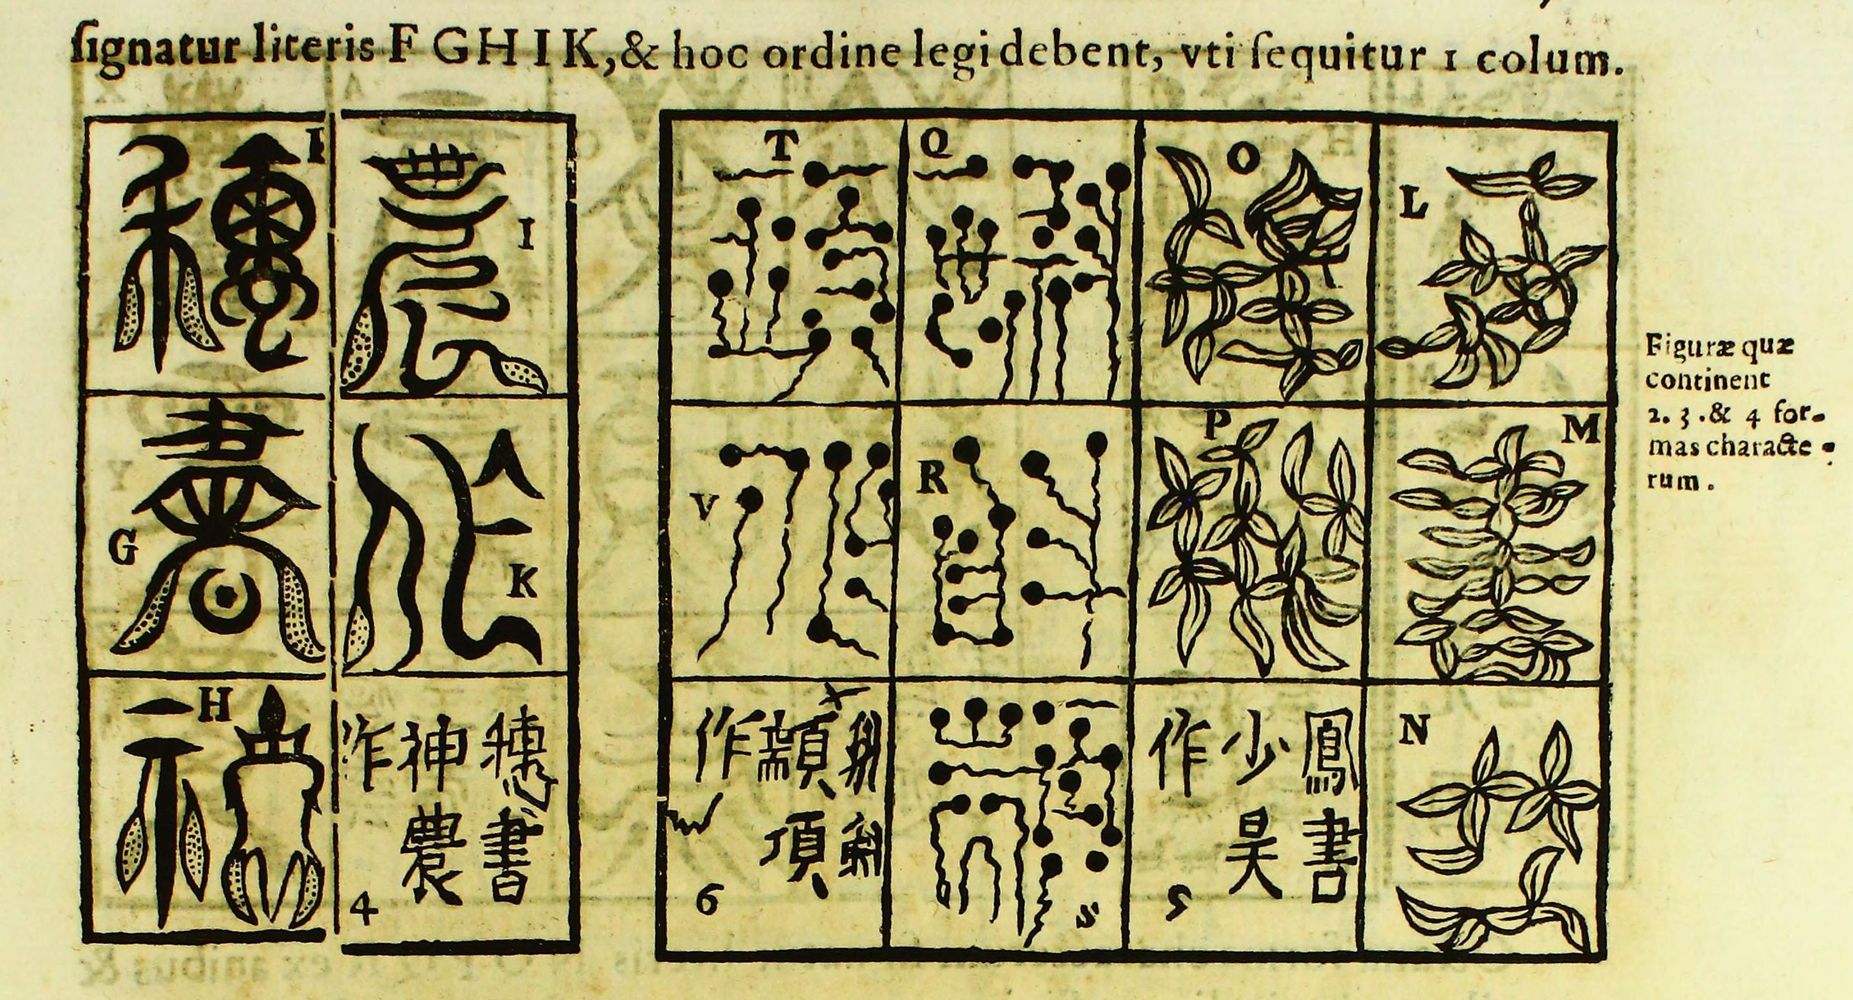 ſignatur literis F G H I K, & hoc ordine legi debent, vti ſequitur 1 colum.
I
G
K
H
穗書
神農
作
4
T
Q
O
L
V
R
P
M
N
S
鳳書
少昊
作
5
作
6
Figuræ quæ
continent
2. 3. & 4 for-
mas characte-
rum.